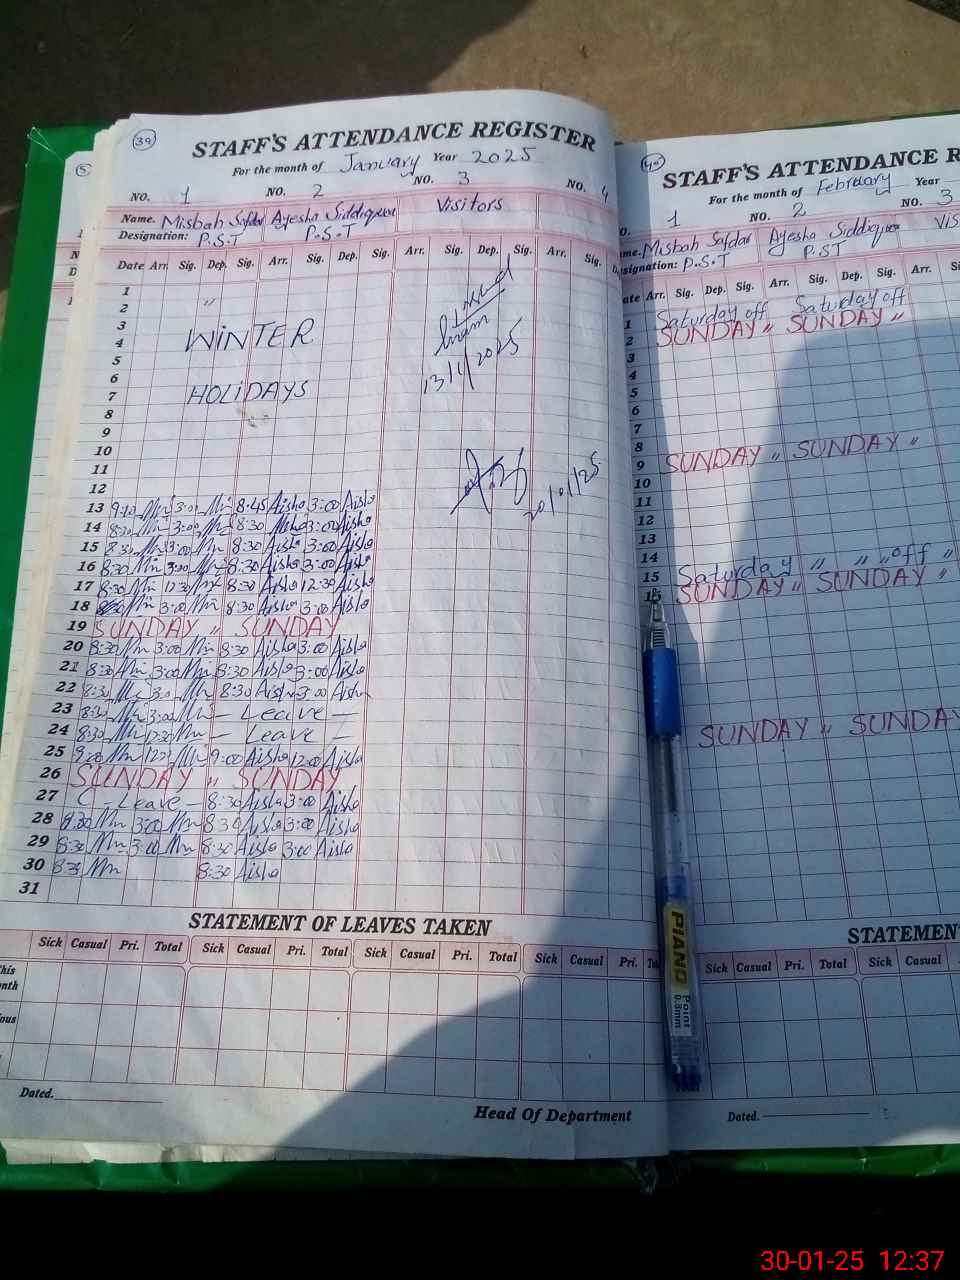 39
STAFF'S ATTENDANCE REGISTER
For the month of January Year 2025
NO. 1 NO. 2 NO. 3 NO. 4
Name. Misbah Safdar Ayesha Siddiquea Visitors
Designation: P.S.T P.S.T
Date Arr. Sig. Dep. Sig. Arr. Sig. Dep. Sig. Arr. Sig. Dep. Sig. Arr. Sig.
1
2 "
3
4 WINTER
5
6
7 HOLIDAYS
8
9
10
11
12
13/1/2025
20/01/25
13 8:45 Aisha 3:00 Aisha
14 8:30 3:00 8:30 Aisha 3:00 Aisha
15 8:30 3:00 8:30 Aisha 3:00 Aisha
16 8:30 3:00 8:30 Aisha 3:00 Aisha
17 8:30 12:30 8:30 Aisha 12:30 Aisha
18 3:00 8:30 Aisha 3:00 Aisha
19 SUNDAY " SUNDAY
20 8:30 3:00 8:30 Aisha 3:00 Aisha
21 8:30 3:00 8:30 Aisha 3:00 Aisha
22 8:30 8:30 Aisha 3:00 Aisha
23 8:30 3:00 - Leave -
24 8:30 12:30 - Leave -
25 9:00 9:00 Aisha 12:00 Aisha
26 SUNDAY " SUNDAY
27 C - Leave - 8:30 Aisha 3:00 Aisha
28 8:30 3:00 8:30 Aisha 3:00 Aisha
29 8:30 3:00 8:30 Aisha 3:00 Aisha
30 8:30 8:30 Aisha
31
STATEMENT OF LEAVES TAKEN
Sick Casual Pri. Total Sick Casual Pri. Total Sick Casual Pri. Total Sick Casual Pri.
Dated.
Head Of Department
STAFF'S ATTENDANCE R
For the month of February Year
1 NO. 2 NO. 3
Misbah Safdar Ayesha Siddiquea
Designation: P.S.T P.S.T
Arr. Sig. Dep. Sig. Arr. Sig. Dep. Sig. Arr.
1 Saturday off Saturday off
2 SUNDAY " SUNDAY "
3
4
5
6
7
8
9 SUNDAY " SUNDAY "
10
11
12
13
14
15 Saturday " " " off "
16 SUNDAY " SUNDAY "
SUNDAY " SUNDAY
PIANO
Point
0.8mm
STATEMEN
Sick Casual Pri. Total Sick Casual
Dated.
30-01-25 12:37